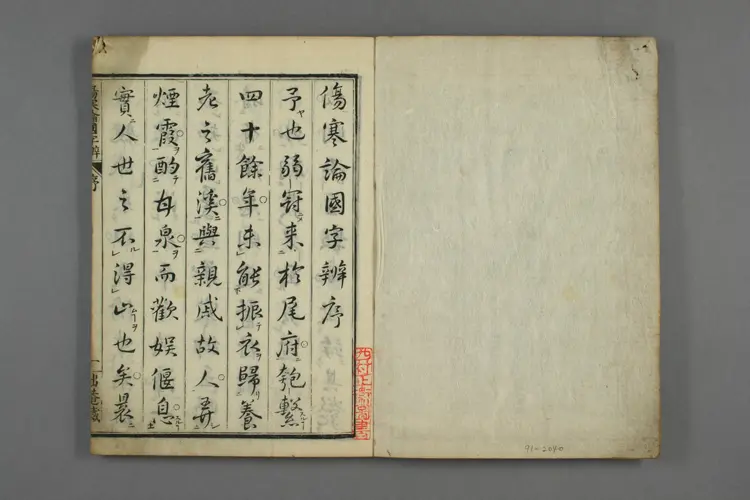 傷寒論國字辨序
予也弱冠来於尾府匏繫
四十餘年未能振衣歸養
老之舊溪與親戚故人弄
煙霞酌甘泉而歡娯偃息
實人世之不得止也矣曩
傷寒論國字辨 序
91-2040